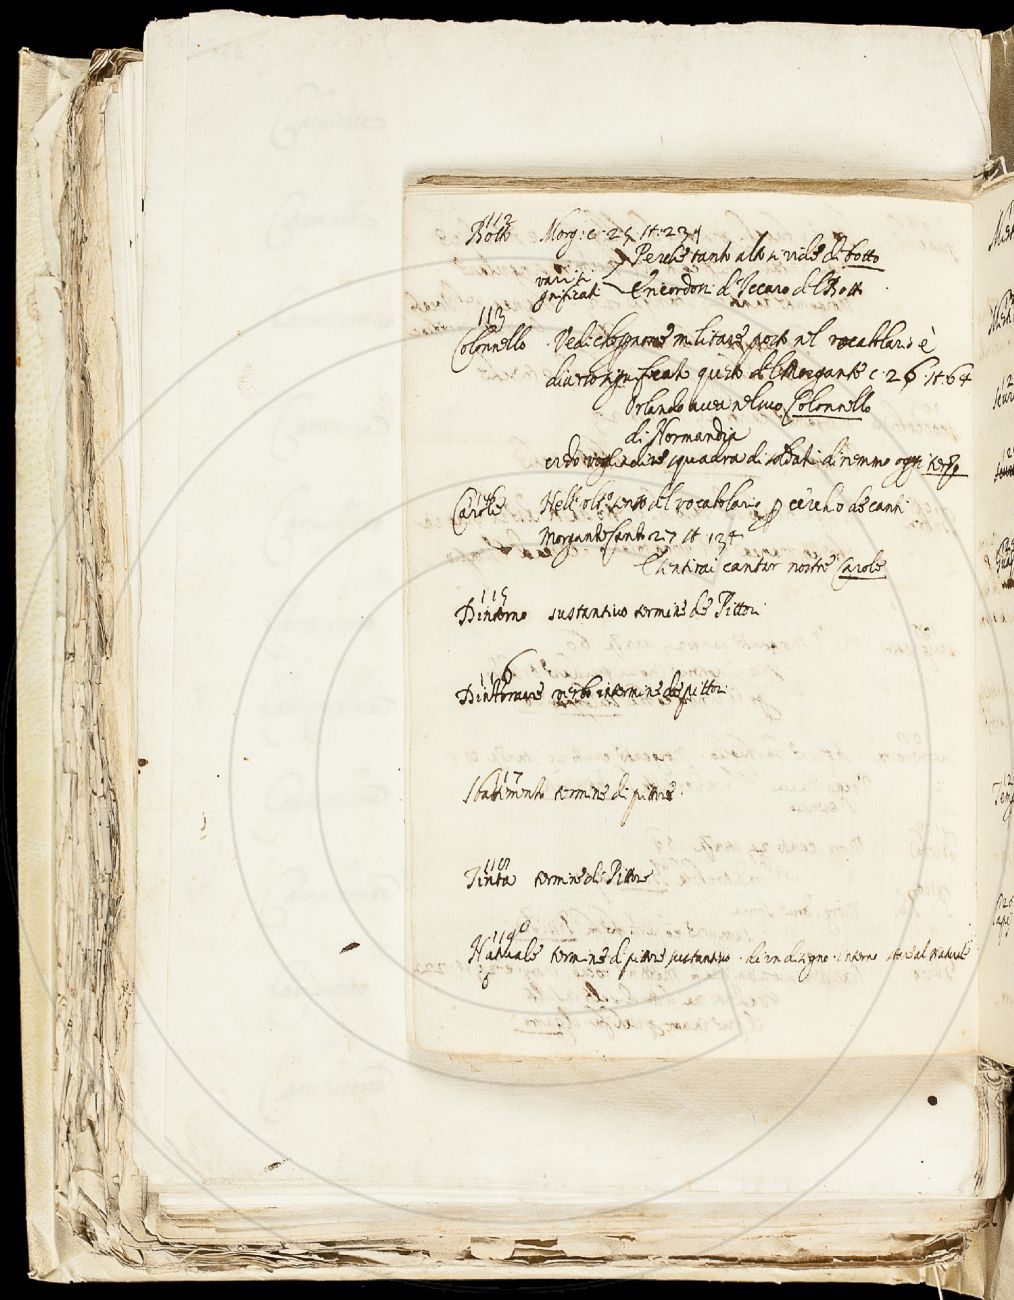 112
Botto Morg: c. 25. st. 231
Perche tanto alto si vide di botto
varii si
gnificati E ricordon di Zeccaro del Botto
113
Colonnello Vedi che ignore militare posto nel vocabolario è
diverso significato questo del Morgante c. 26. st. 64
Orlando avea nel suo Colonnello
di Normandia
credo voglia dire squadra di soldati diremmo oggi terzo
114
Carole Nell' olt.º senso del vocabolario p cerchio de canti
Morgante Canto 27 st 134
E sentirai cantar nostre Carole
115
Dintorno sustantivo termine de Pittori
116
Dintornare verbo e termine de pittori
117
Sbattimento termine di pittore.
118
Tinta termine di Pittore
119
Naturale termine di pittore sustantivo. di un disegno. intorno stare al naturale